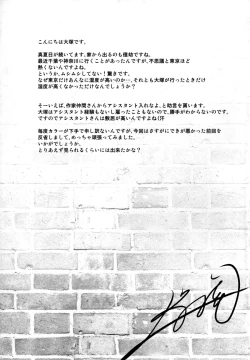 こんにちは大塚です。
真夏日が続いてます。家から出るのも億劫ですね。
最近千葉や神奈川に行くことがあったんですが、不思議と東京ほど
熱くないんですよね。
というか、ムシムシしてない！驚きです。
なぜ東京だけあんなに湿度が高いのか…、それとも大塚が行ったときだけ
湿度が高くなかっただけなんでしょうか？
そういえば、作家仲間さんからアシスタント入れなよ、と助言を貰います。
大塚はアシスタント経験もないし雇ったこともないので、勝手がわからないのです。
ですのでアシスタントさんは敷居が高いんですよね!汗
毎度カラーが下手で申し訳ないんですが、今回はさすがにできが悪かった前回を
反省しまして、めっちゃ頑張ってみました。
いかがでしょうか。
とりあえず見られるくらいには出来たかな？